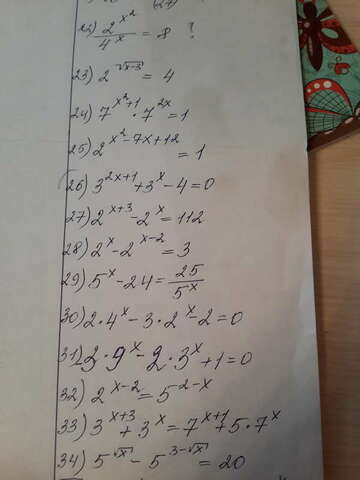 22) 2^{x^2}/4^x = 8 ?
23) 2^{√(x-3)} = 4
24) 7^{x^2+1} · 7^{2x} = 1
25) 2^{x^2-7x+12} = 1
26) 3^{2x+1} + 3^x - 4 = 0
27) 2^{x+3} - 2^x = 112
28) 2^x - 2^{x-2} = 3
29) 5^x - 24 = 25/5^x
30) 2·4^x - 3·2^x - 2 = 0
31) 3·9^x - 2·3^x + 1 = 0
32) 2^{x-2} = 5^{2-x}
33) 3^{x+3} + 3^x = 7^{x+1} + 5·7^x
34) 5^{√x} - 5^{3-√x} = 20